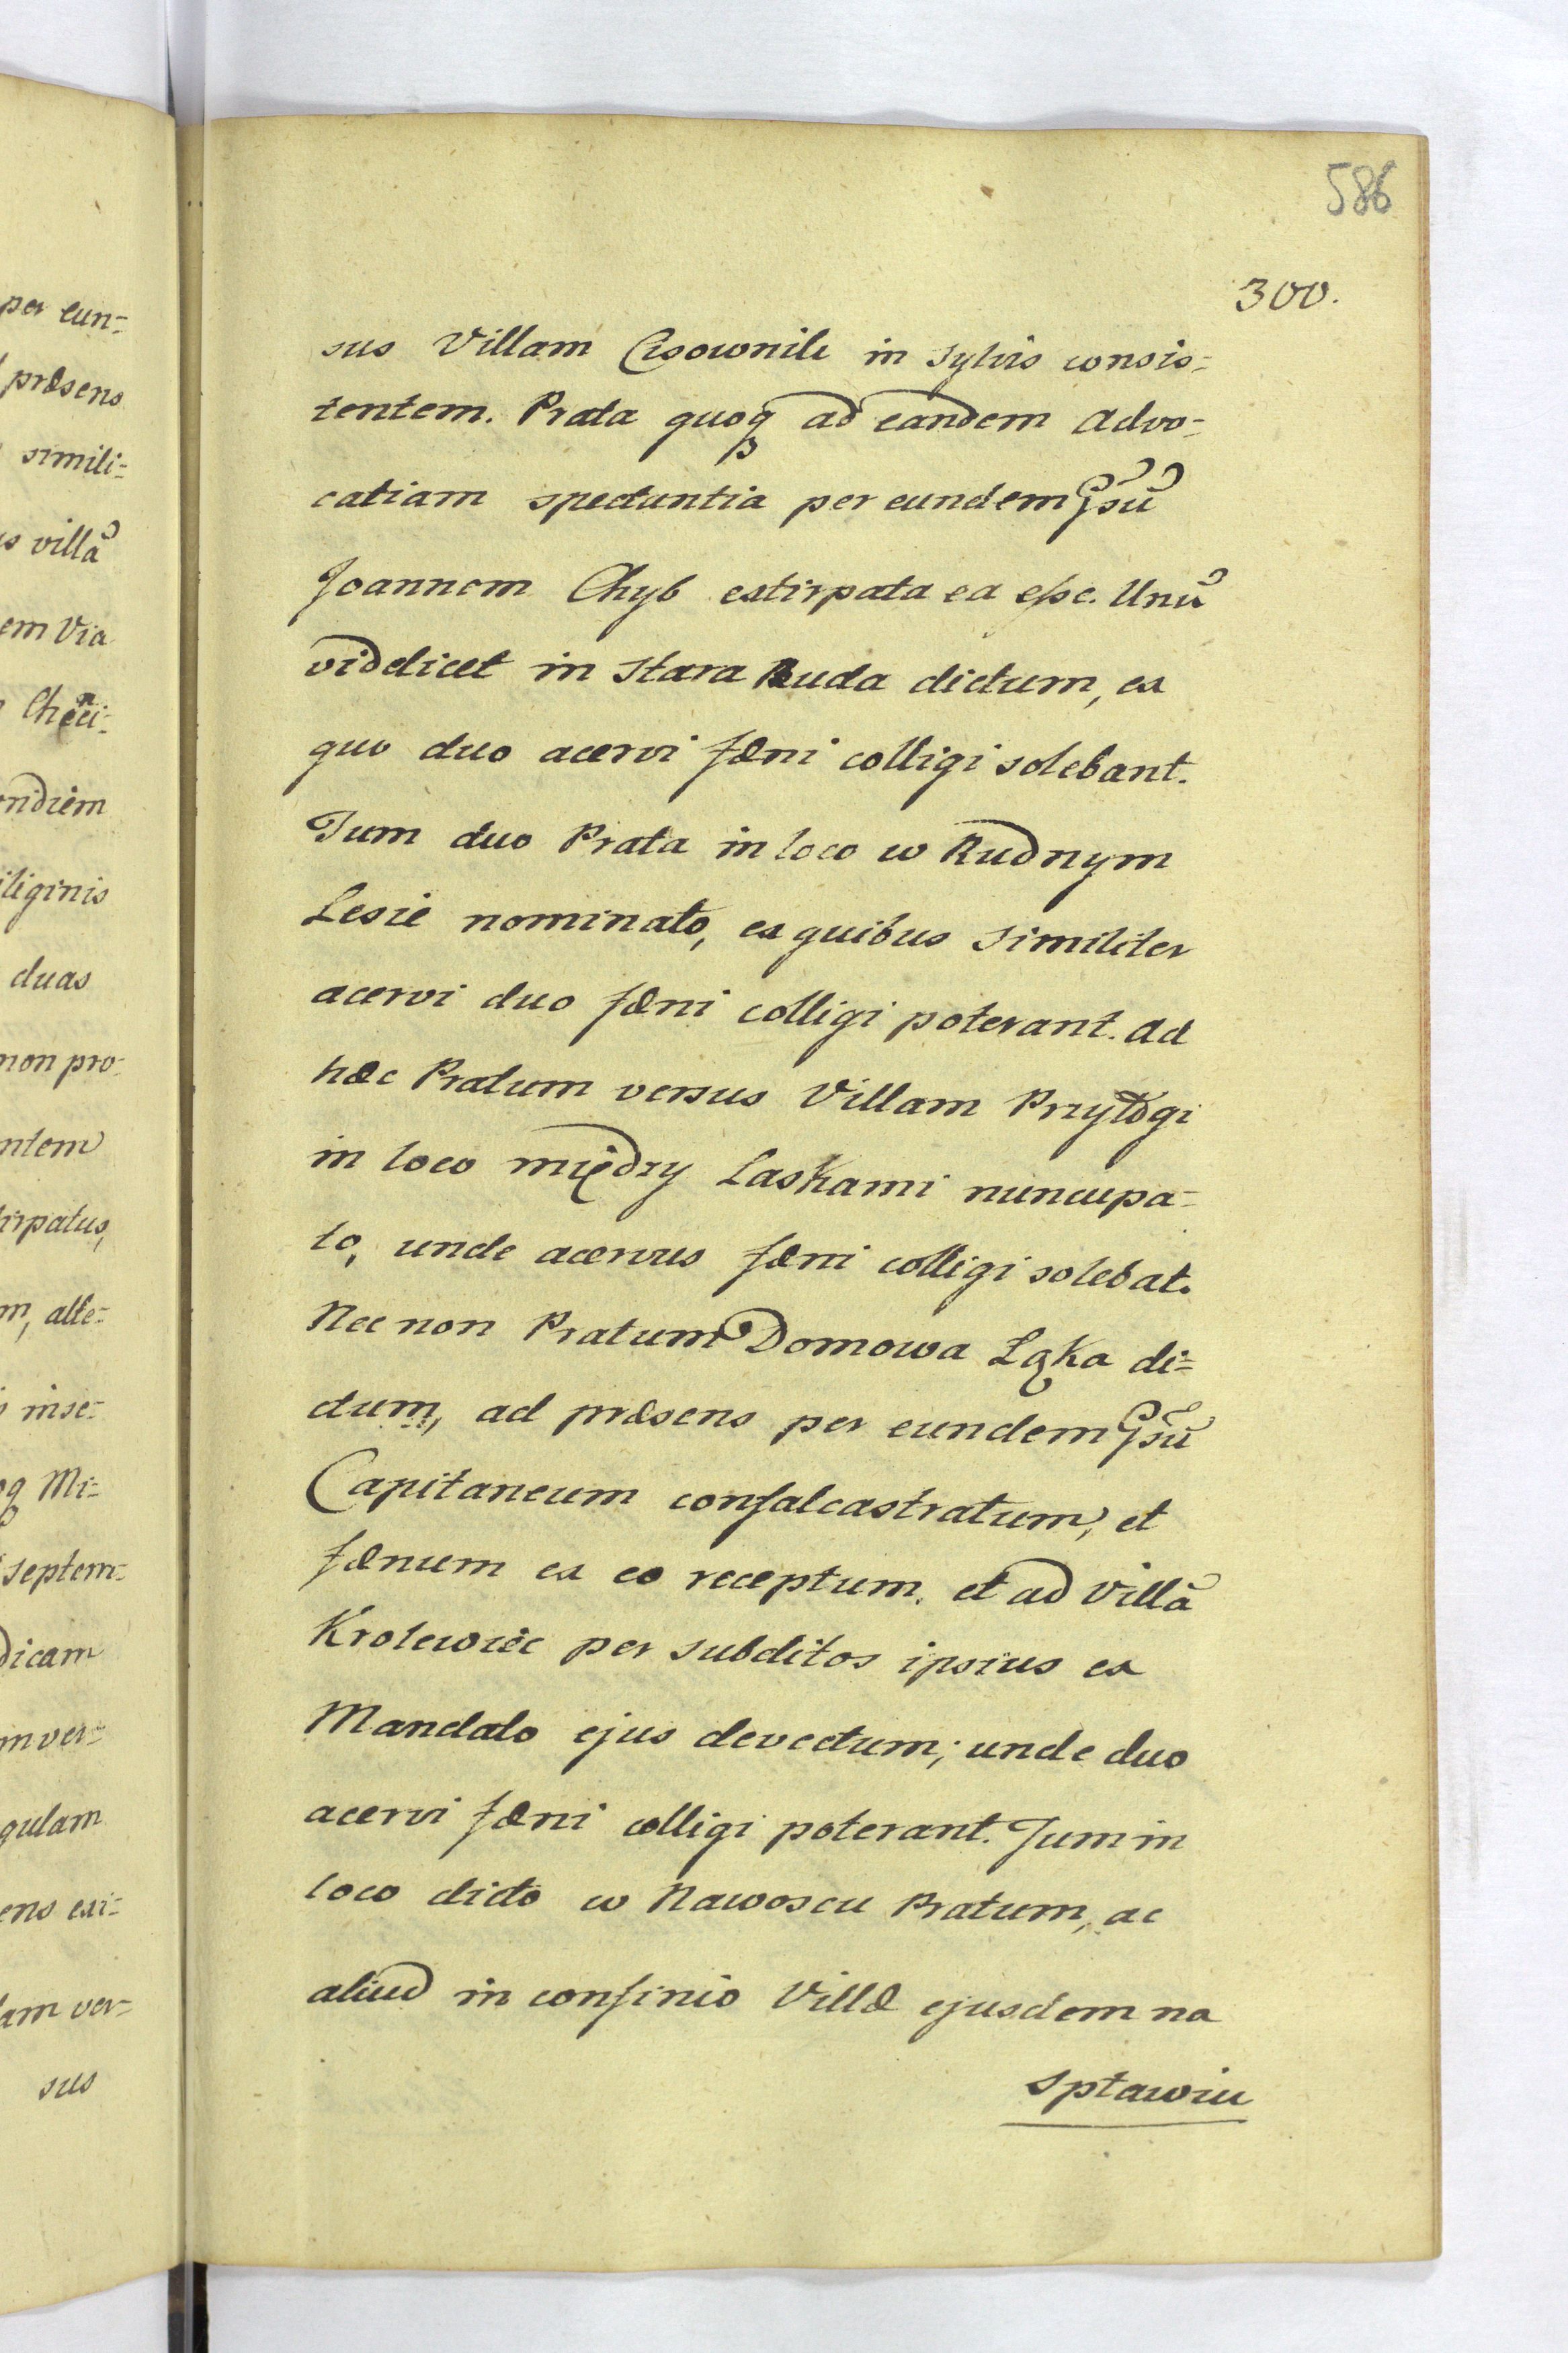 586
300.
sus Villam Cisownik in sylvis consis=
tentem. Prata quoq ad eandem Advo=
catiam spectantia per eundem Gsũ
Joannem Chyb extirpata ea esse. Unũ
videlicet in Stara Ruda dictum, ex
quo duo acervi fæni colligi solebant.
Tum duo Prata in loco w Rudnym
Lesie nominato, ex quibus similiter
acervi duo fæni colligi poterant. Ad
hæc Pratum versus Villam Przyłogi
in loco między Laskami nuncupa=
to, unde acervus fæni colligi solebat.
Nec non Pratum Domowa Ląka di=
ctum, ad præsens per eundem Gsũ
Capitaneum confalcastratum, et
fænum ex eo receptum, et ad villã
Krolewiec per subditos ipsius ex
Mandato ejus devectum; unde duo
acervi fæni colligi poterant. Tum in
loco dicto w Nawoscu Pratum, ac
aliud in confinio Villæ ejusdem na
spławiu
per eun=
præsens
simili=
s villã
em Via
Chęci=
ondiem
iliginis
duas
non pro=
ntem
tirpatus,
m, alte=
inse=
q Mi=
septem=
dicam
m ver=
gulam
ens exi=
lam ver=
sus